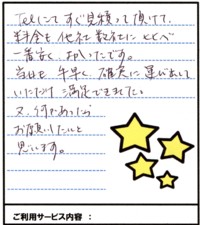 Telにて すぐ見積って頂けて、
料金も他社数社にくらべ
一番安く、
当日も、手早く、確実に運び出して
いただけ 満足できました。
又、何かあったら
お願いしたいと
思います。
ご利用サービス内容：